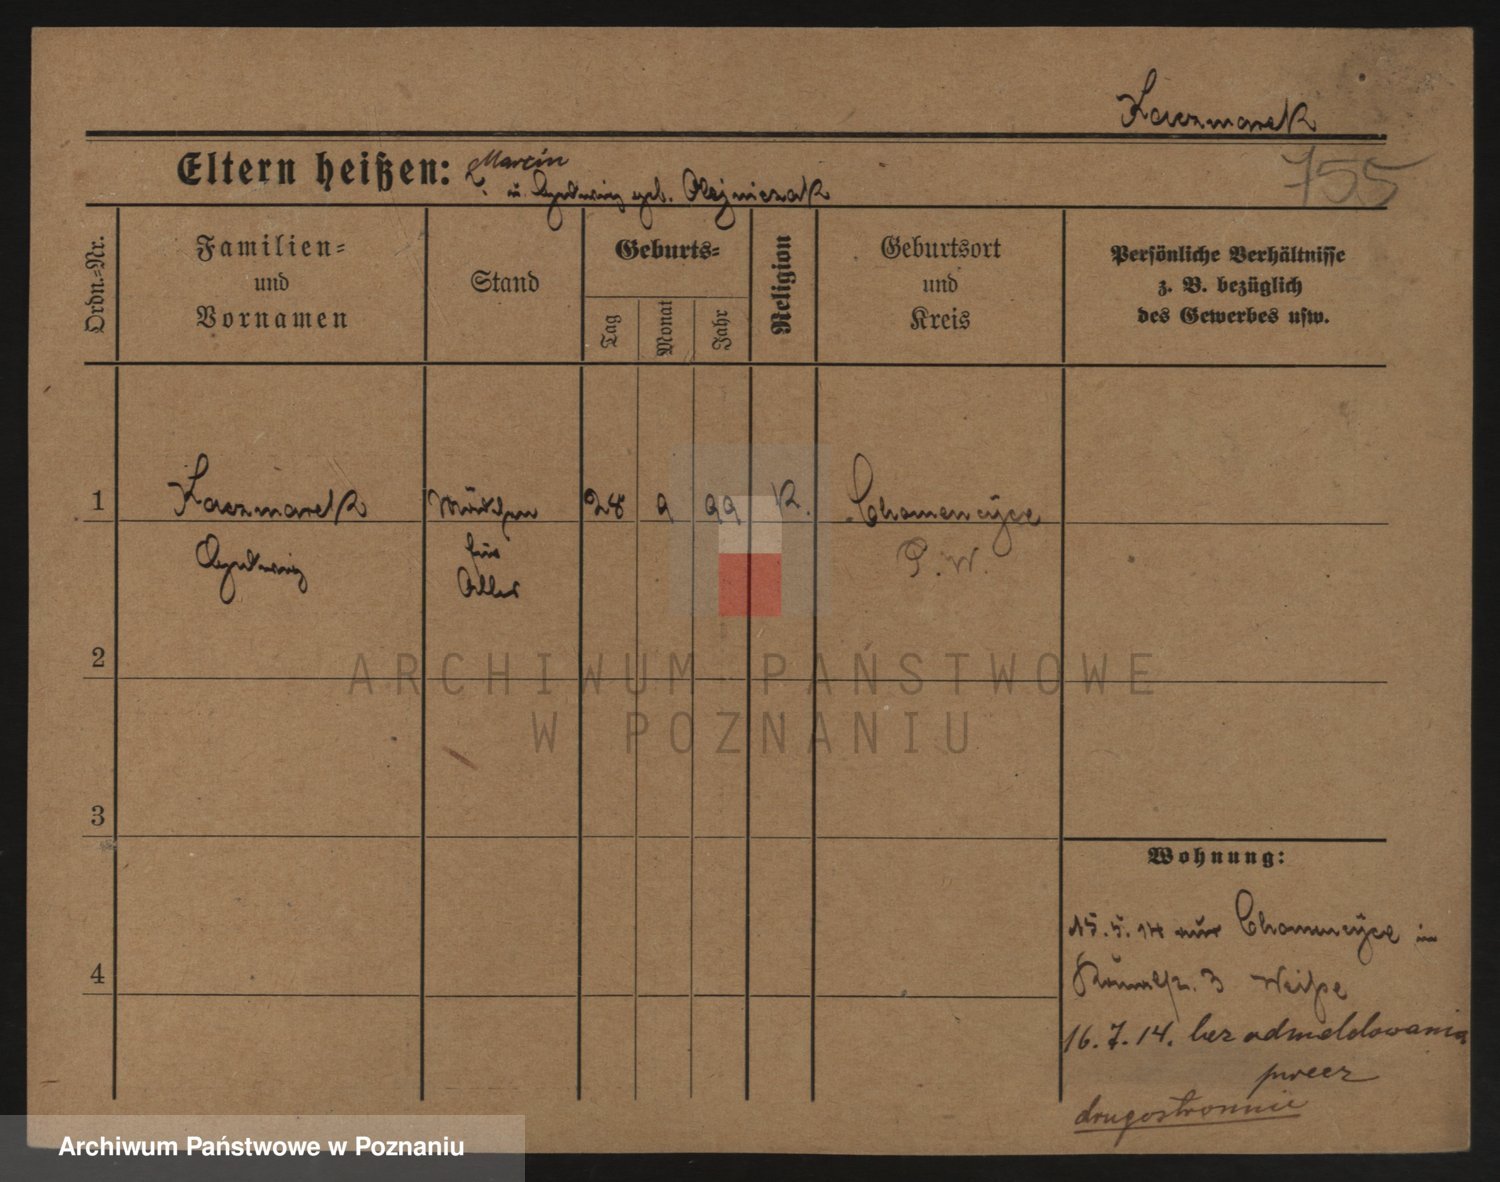 Kaczmarek
755
Eltern heißen: Marcin
u. Hedwig geb. Olejniczak
Ordn.-Nr.
Familien-
und
Vornamen
Stand
Geburts-
Tag
Monat
Jahr
Religion
Geburtsort
und
Kreis
Persönliche Verhältnisse
z. B. bezüglich
des Gewerbes usw.
1 Kaczmarek Mädchen 28 9 99 K. Chomencyce
Hedwig für P. W.
Alles
2
3
4
ARCHIWUM PAŃSTWOWE
W POZNANIU
Wohnung:
15.5.14 aus Chomencyce in
3 Weiße
16.7.14. bez odmeldowania
precz
drugostronnie
Archiwum Państwowe w Poznaniu